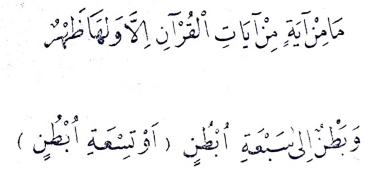 مَا مِنْ آيَةٍ مِنْ آيَاتِ الْقُرْآنِ اِلَّا وَلَهَا ظَهْرٌ
وَبَطْنٌ اِلىٰ سَبْعَةِ اُبْطُنٍ ( اَوْ تِسْعَةِ اُبْطُنٍ )